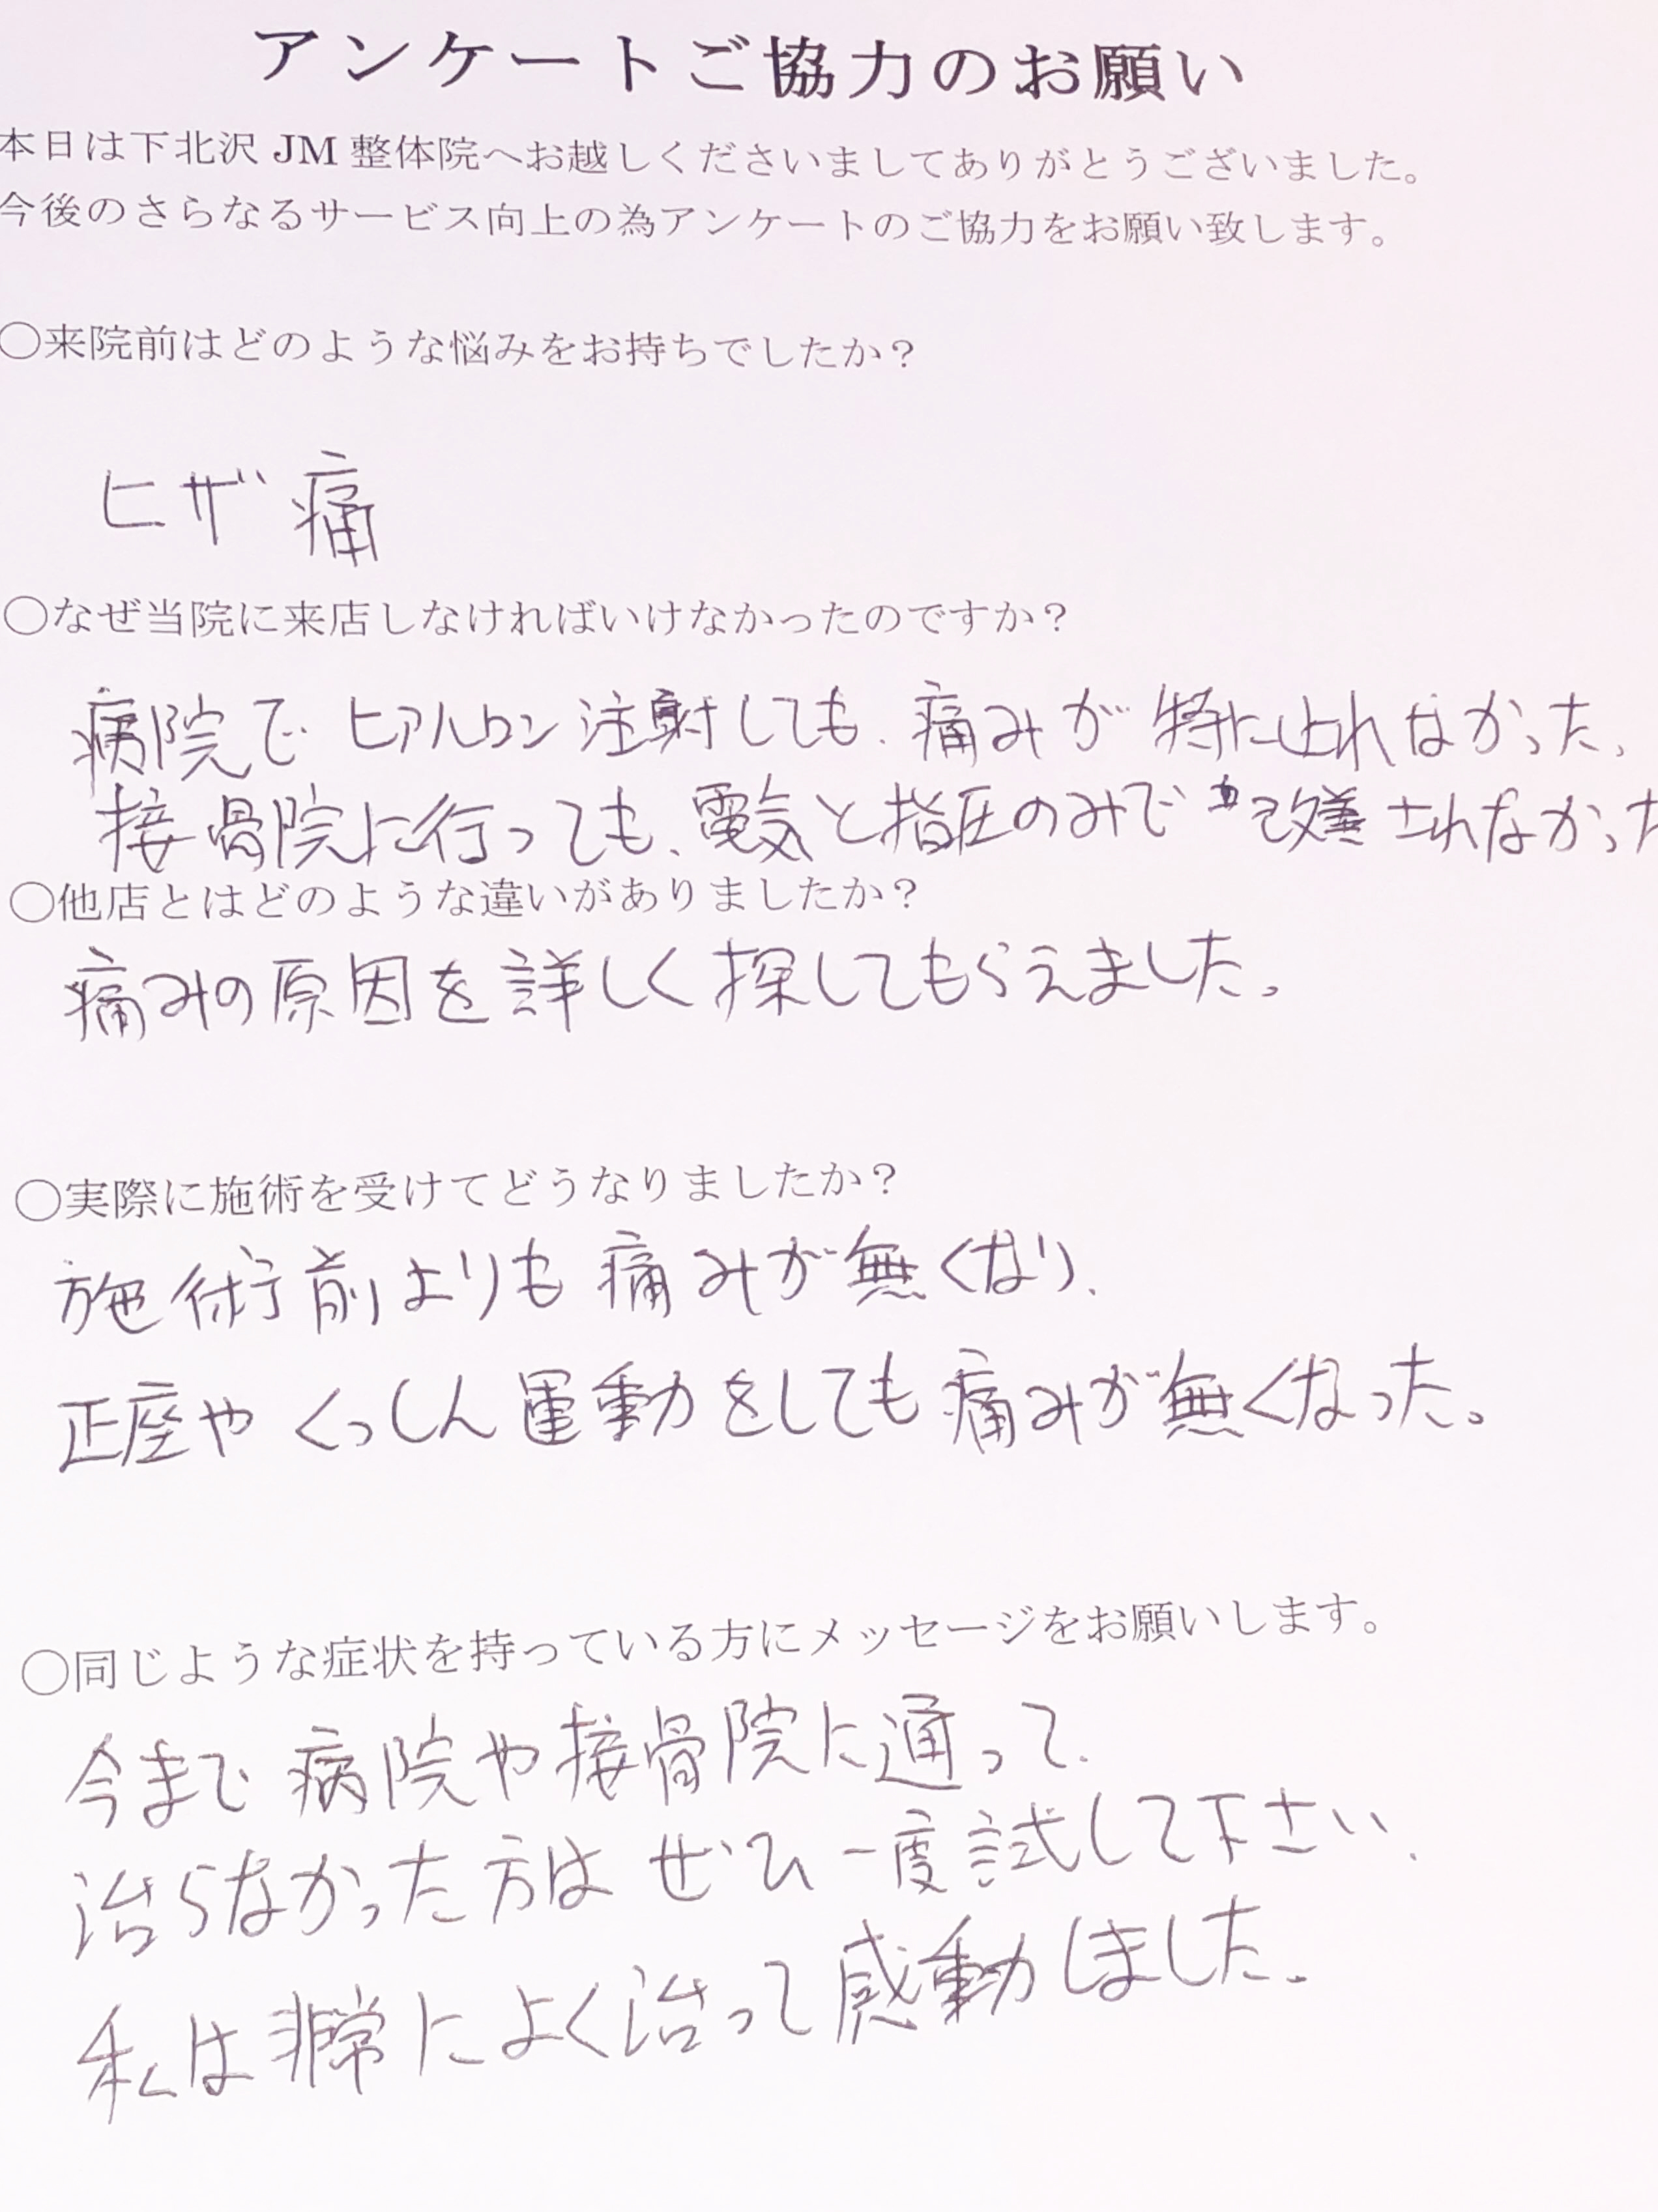 アンケートご協力のお願い
本日は下北沢 JM 整体院へお越しくださいましてありがとうございました。
今後のさらなるサービス向上の為アンケートのご協力をお願い致します。
〇来院前はどのような悩みをお持ちでしたか？
ヒザ痛
〇なぜ当院に来店しなければいけなかったのですか？
病院でヒアルロン注射しても、痛みが特に止れなかった、
接骨院に行っても、電気と指圧のみで改善されなかった
〇他店とはどのような違いがありましたか？
痛みの原因を詳しく探してもらえました。
〇実際に施術を受けてどうなりましたか？
施術前よりも痛みが無くなり、
正座やくっしん運動をしても痛みが無くなった。
〇同じような症状を持っている方にメッセージをお願いします。
今まで病院や接骨院に通って、
治らなかった方はぜひ一度試して下さい、
私は非常によく治って感動しました。